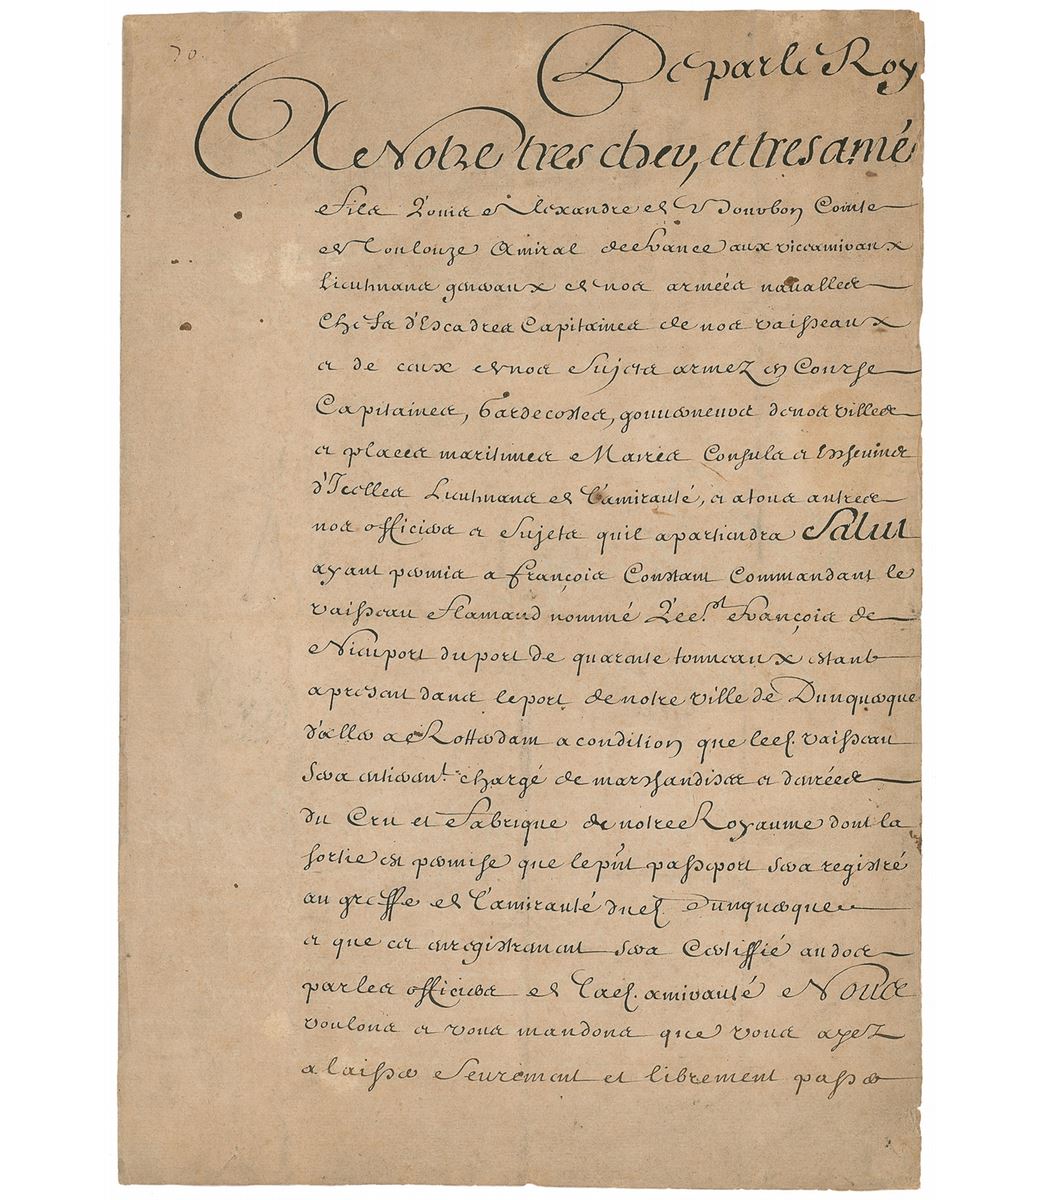 70.
De par le Roy
A Notre tres cher, et tres amé
Fils Louis Alexandre de Bourbon Comte
de Toulouze Amiral de France aux viceamiraux
Lieutenans generaux de nos armées naualles
Chefs d'Escadres Capitaines de nos vaisseaux
a de ceux de nos Sujets armez en Course
Capitaines, Gardecostes, gouuerneurs denos villes
a places maritimes Maires Consuls a Escheuins
d'Icelles Lieutenans de l'amirauté, a atous autres
nos officiers a Sujets quil apartiendra Salut
ayant permis a François Constant Commandant le
vaisseau Flamand nommé Le St. François de
Nieuport du port de quarente tonneaux estant
apresent dans leport de notre ville de Dunquerque
d'aller a Rotterdam acondition que led. vaisseau
sera entierent. chargé de marchandises a denrées
du Cru et Fabrique de notre Royaume dont la
sortie est permise que le pnt passeport sera registré
au greffe de l'amirauté dud. Dunquerque
a que cet enregistrement sera Certiffié audos
parles officiers de lad. amirauté Nous
voulons a vous mandons que vous ayez
alaisser seurement et librement passer